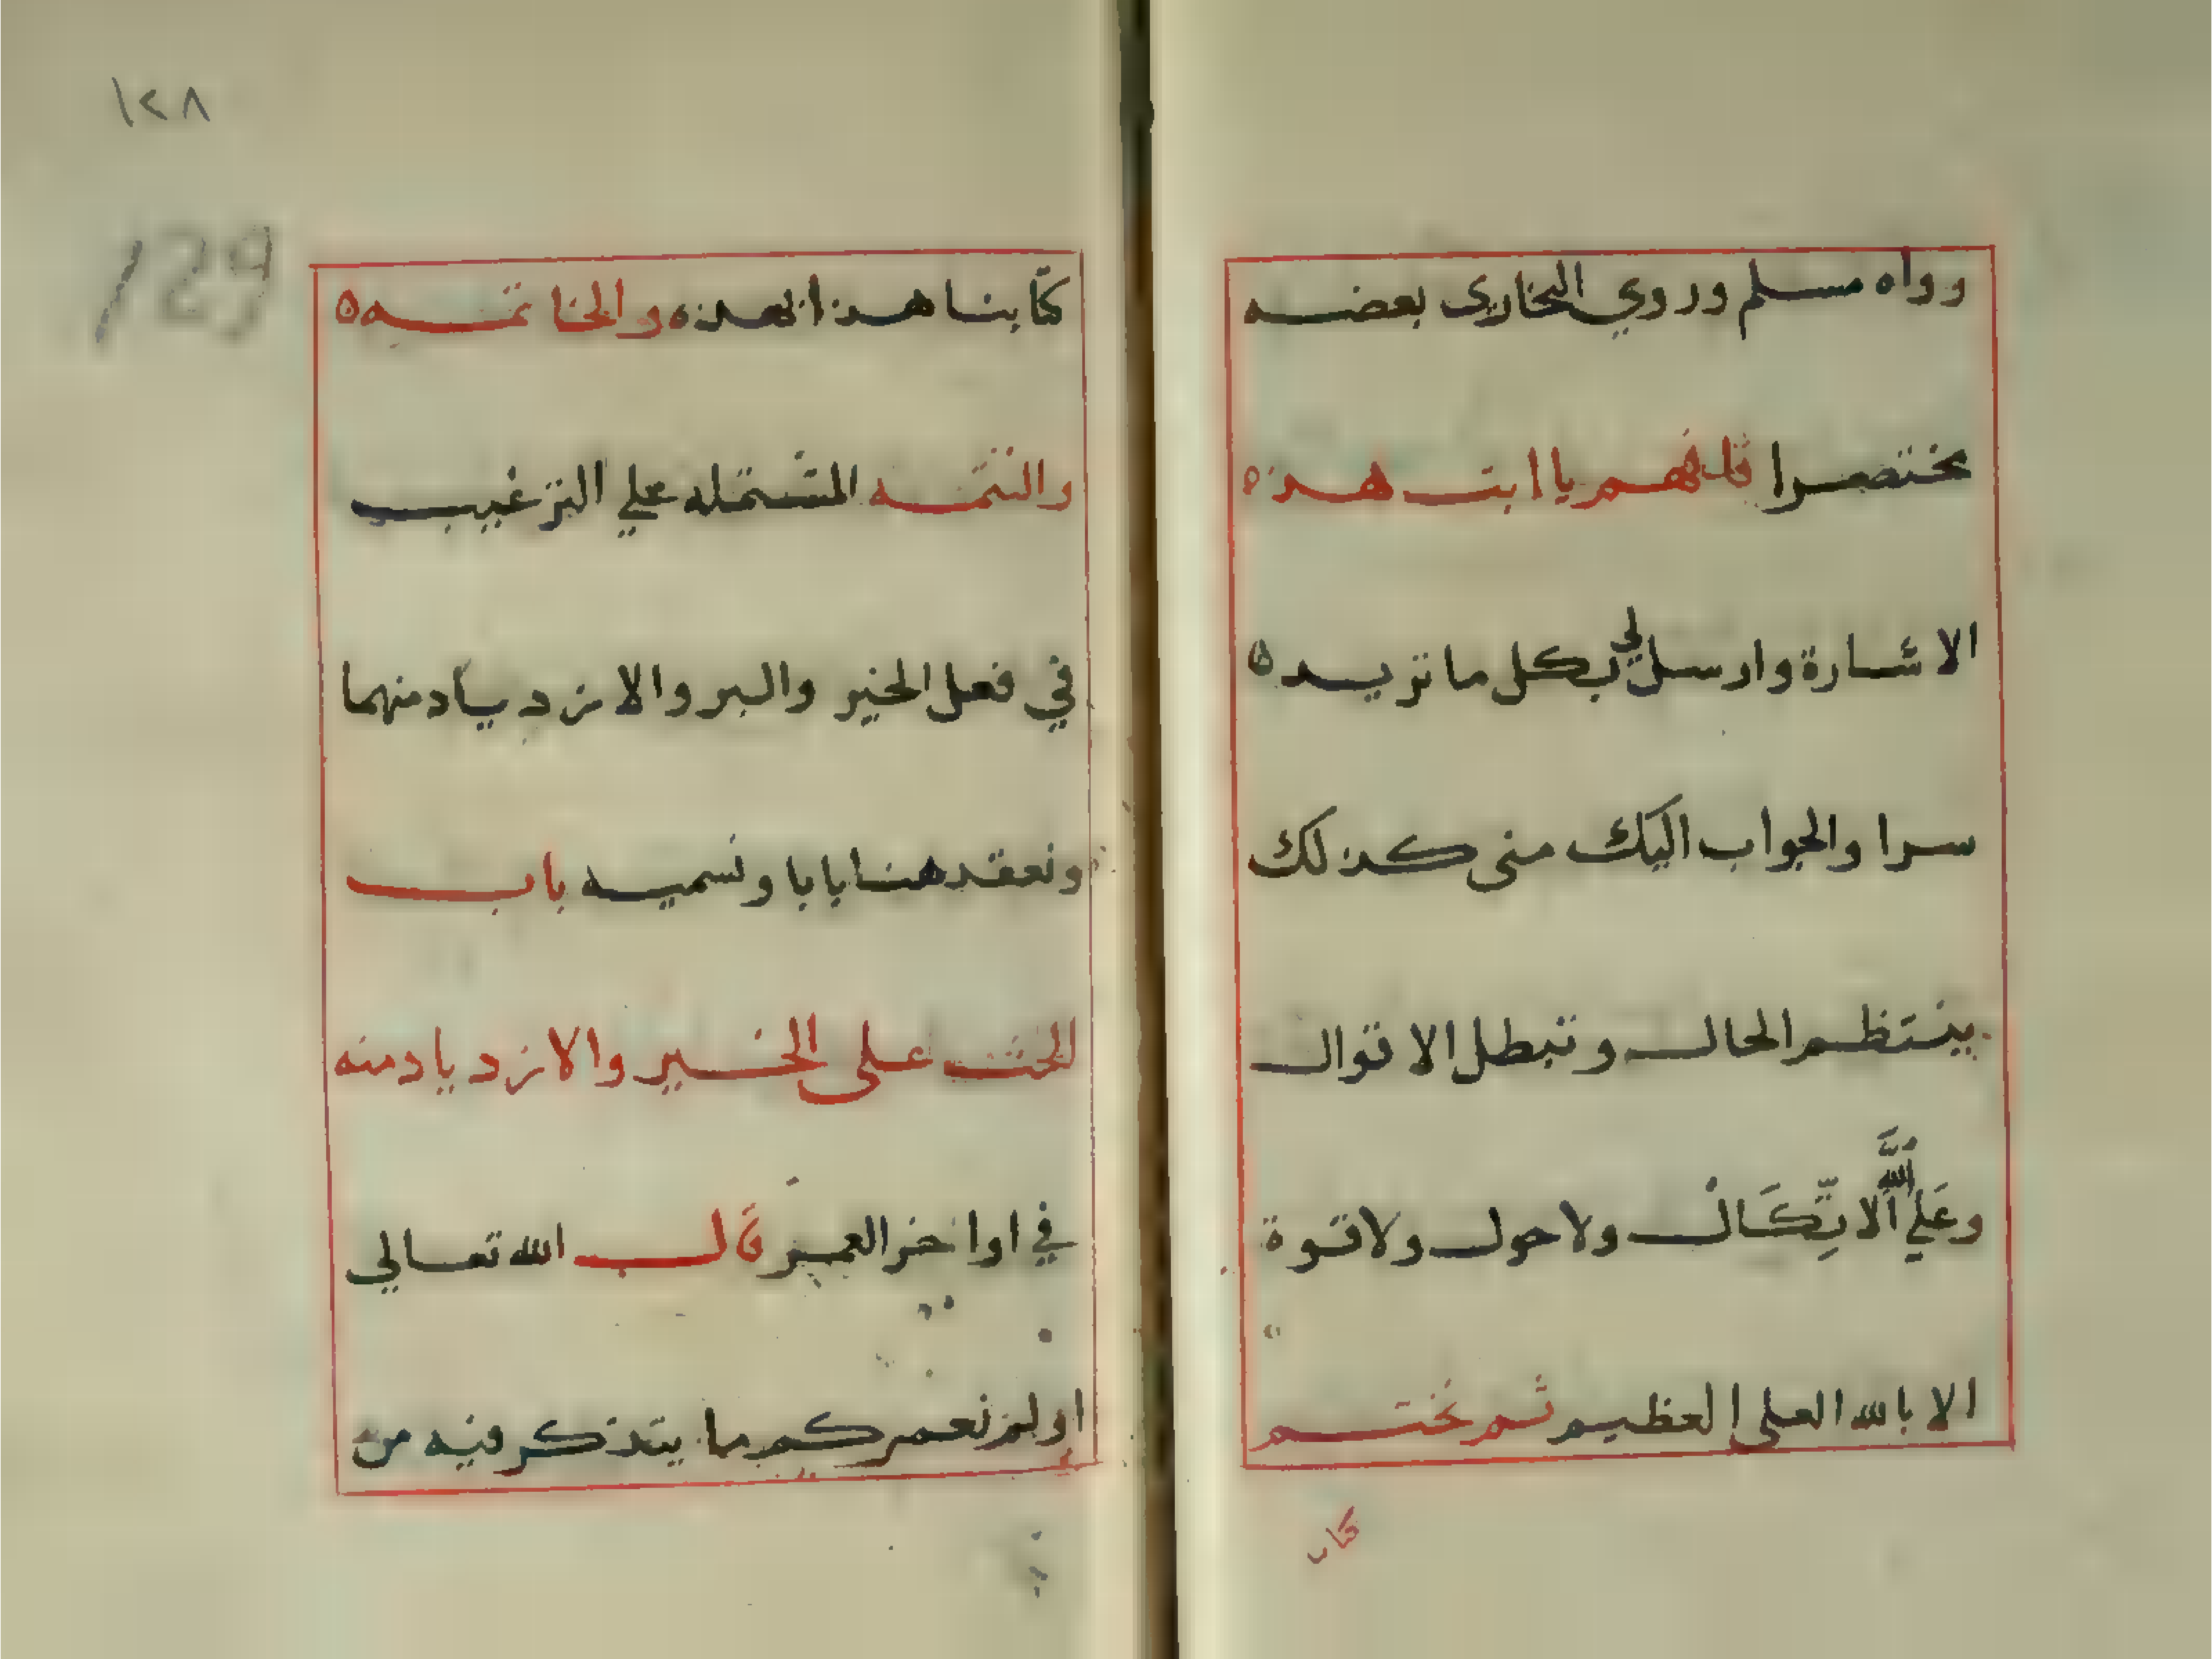 رواه مسلم وروي البخاري بعضه
مختصرا فلتفهم يا ابت هذه
الاشارة وارسل لي بكل ما تريده
سرا والجواب اليك مني كذلك
ينتظم الحال وتبطل الاقوال
وعَلي اللَّه الاتِّكَال ولا حول ولا قوة
الا بالله العلي العظيم ثم نختم
كتاب
١٢٨
129
كتابنا هذا بهذه والخاتمه
والتتمه المشتمله علي الترغيب
في فعل الخير والبر والازدياد منهما
ونعقد هنا بابا ونسميه باب
الحث على الخير والازدياد منه
في اواخر العمر قال الله تعالي
اولم نعمركم ما يتذكر فيه من